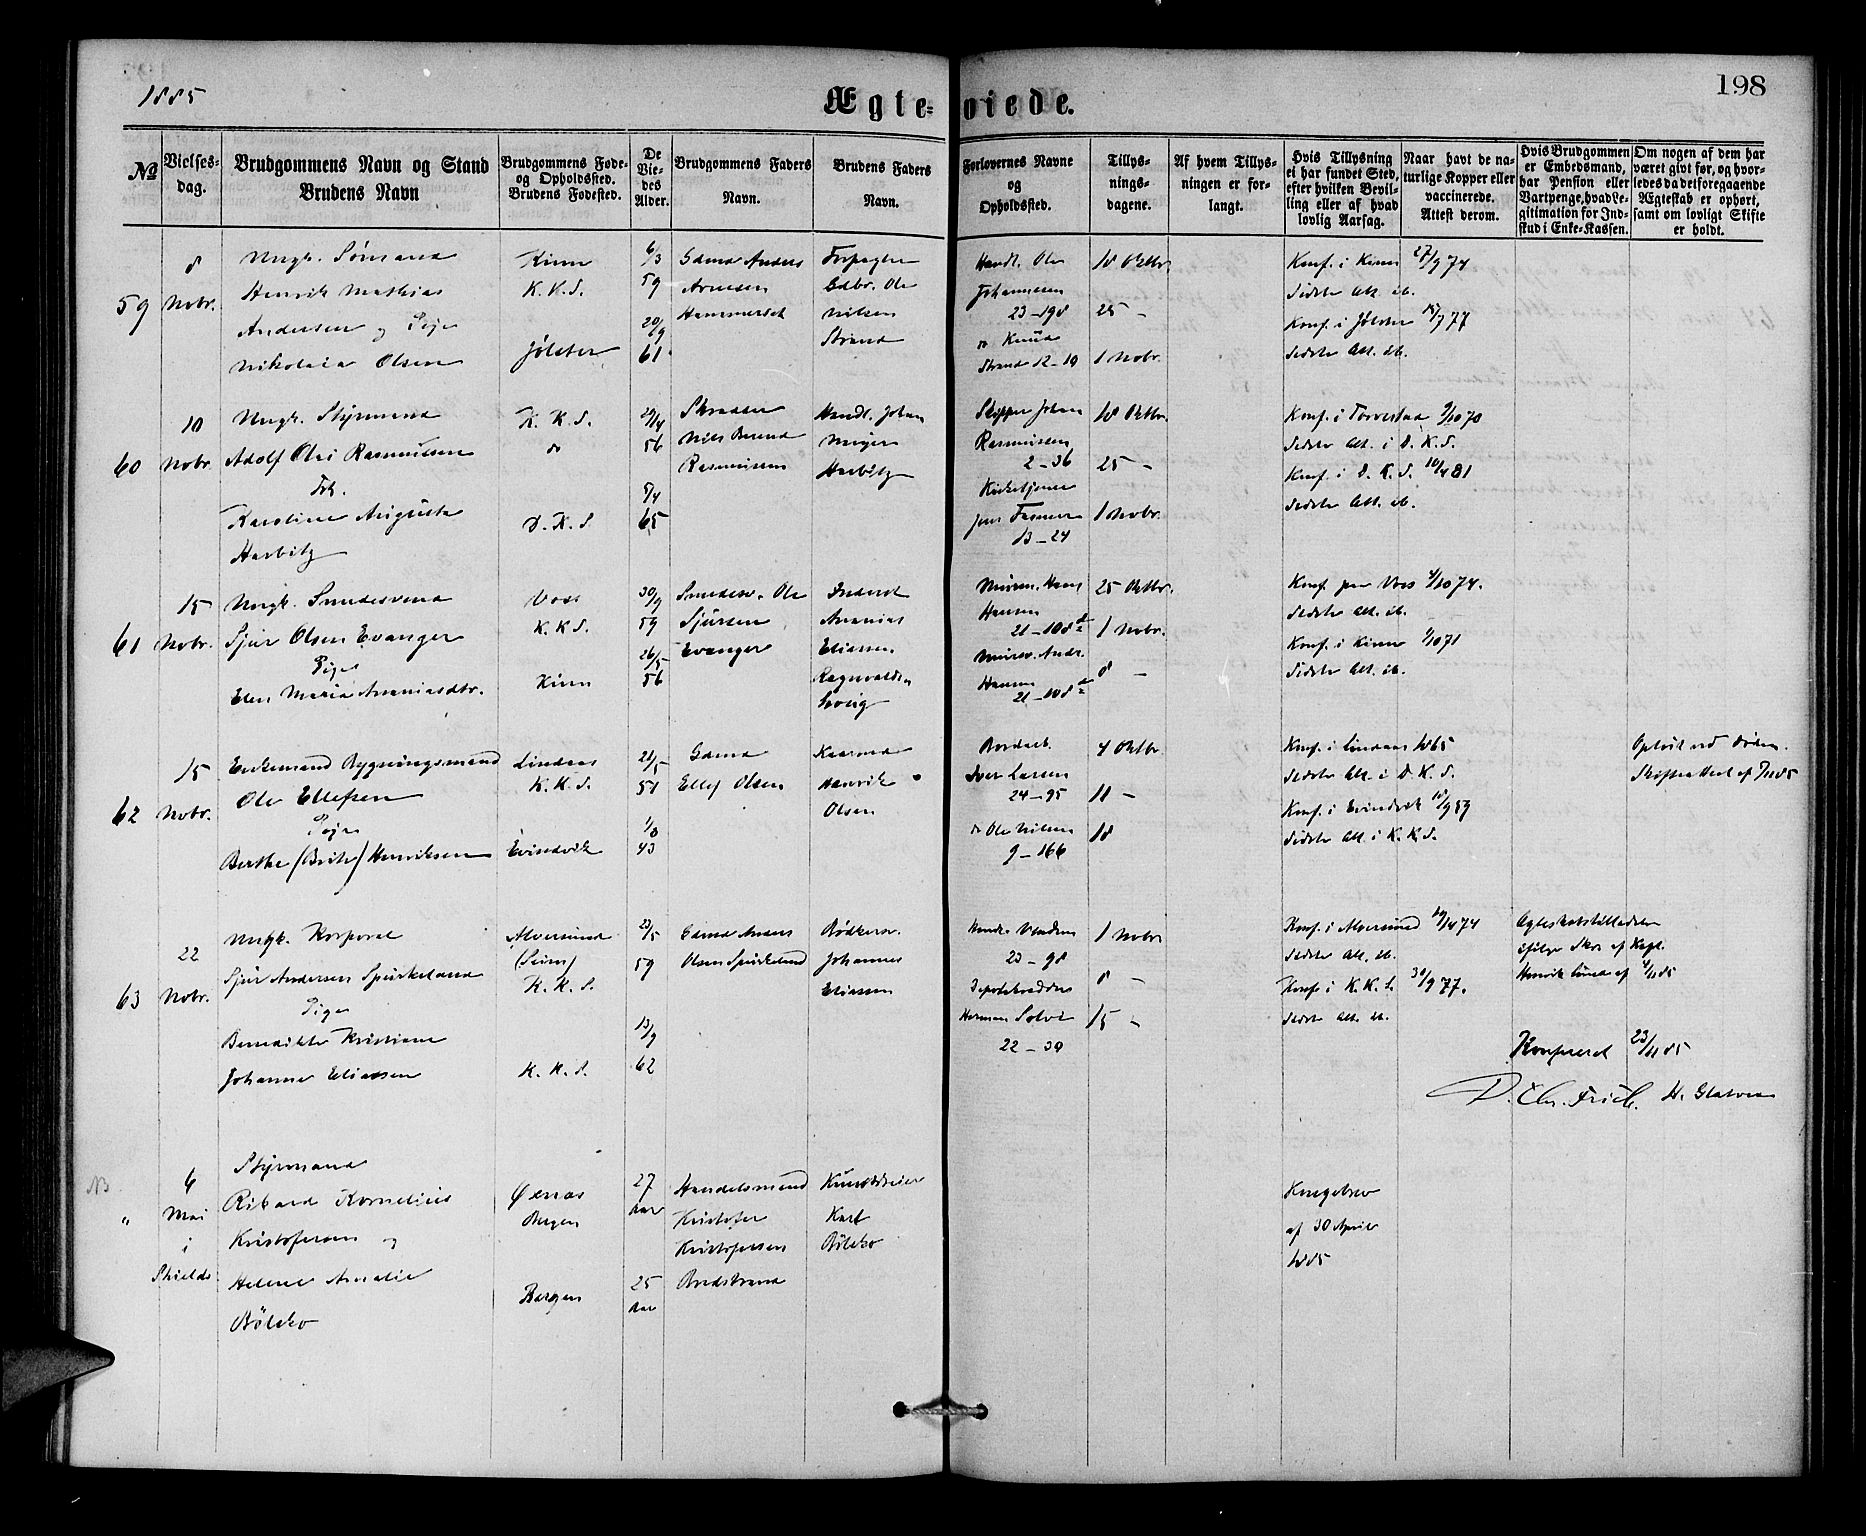 1885
Ægte-viede.
198
№
Vielses-dag.
Brudgommens Navn og Stand
Brudens Navn
Brudgommens Føde- og Opholdsted.
Brudens Fødested.
De Vie-des Alder.
Brudgommens Faders Navn.
Brudens Faders Navn.
Forlovernes Navne og Opholdsted.
Tillys-nings-dagene.
Af hvem Tillys-ningen er for-langt.
Hvis Tillysning ei har fundet Sted, efter hvilken Bevil-ling eller af hvad lovlig Aarsag.
Naar havt de na-turlige Kopper eller vaccinerede. Attest derom.
Hvis Brudgommen er Embedsmand, har Pension eller Vartpenge, hvad Le-gitimation for Ind-skud i Enke-Kassen.
Om nogen af dem har været givt før, og hvor-ledes da det foregaaende Ægteskab er ophørt, samt om lovligt Skifte er holdt.
59
8 Nobr.
Ungk. Sömand
Henrik Mathias
Andersen og Pige
Nikolaia Olsen
Kinn
K.K.S.
Jölster
6/3
59
20/9
61
Gdmd Anders
Arnesen
Hammerset
Forpagter
Gdbr. Ole
Nilsen
Strand
Handl. Ole
Johannesen
23-198
do Knud
Strand 12-19
18 Oktbr.
25 -
1 Nobr.
Konf. i Kinn 27/9 74
Sidste Alt. ib.
Konf. i Jölster 16/9 77
Sidste Alt. ib.
60
10 Nobr.
Ungk. Styrmand
Adolf Olai Rasmussen
Frk.
Karoline Augusta
Harbitz
K.K.S.
do
D.K.S
29/4
56
5/4
65
Skrædder
Nils Berend
Rasmussen
Handl. Johan
Meyer
Harbitz
Skipper Johan
Rasmussen
2-36
Kirketjener
Jens Fasmer
13-24
18 Oktbr.
25 -
1 Nobr.
Konf. i Torvestad 9/10 70
Sidste Alt. i D.K.S.
Konf. i D.K.S. 10/4 81
Sidste Alt. ib.
61
15 Nobr.
Ungk. Smedesvend
Sjur Olsen Evanger
Pige
Elen Maria Ananiasdtr.
Voss
K.K.S.
Kinn
30/9
59
26/5
56
Smedesv. Ole
Sjursen
Evanger
Inderst
Ananias
Eliassen
Murm. Hans
Hansen
21-108
Mursv. Andr.
Hansen
21-108
25 Oktbr.
1 Nobr.
8 -
Konf. paa Voss 4/10 74.
Sidste Alt. ib.
Konf. i Kinn 1/10 71
Sidste Alt. ib.
62
15 Nobr.
Enkemand Bygningsmand
Ole Ellefsen
Pige
Berthe (Brite) Henriksen
Lindaas
K.K.S.
Evindvik
21/5
51
1/8
43
Gdmd
Ellef Olsen
Kaarmd
Henrik
Olsen
Bordarb.
Iver Larsen
24-95
do Ole Nilsen
9-166
4 Oktbr
11 -
18
Konf. i Lindaas 1865
Sidste Alt. i D.K.S.
Konf. i Evindvik 18/9 59
Sidste Alt. i K.K.S.
Oplöst ved Döden.
Skifteattest af 7/11 85
63
22 Nobr.
Ungk. Korporal
Sjur Andersen Spurkeland
Pige
Benedikte Kristiane
Johanne Eliassen
Alversund
(Seim)
K.K.S.
K.K.S.
23/5
59
13/9
62
Gdmd Anders
Olsen Spurkeland
Bödkersv.
Johannes
Eliassen
23-98
Herman Solvi
22-30
1 Nobr
8 -
15 -
Konf. i Alversund 19/4 74
Sidste Alt. ib.
Konf. i K.K.S. 30/9 77.
Sidste Alt. ib.
Ægteskabstilladelse
ifölge Skr. af Kapt.
Henrik Lund af 4/11 85
Konfereret 23/11 85
D. Chr. Frich.
NB
"
6 Mai i Shields
Styrmand
Rikard Kornelius
Kristofersen og
Helene Amalie
Böleko
Bergen
Bergen
27
Aar
25
Aar
Handelsmand
Kristofer
Kristofersen
Bredstrand
Kunstdreier
Karl
Böleko
Kongebrev
af 30 April
1885